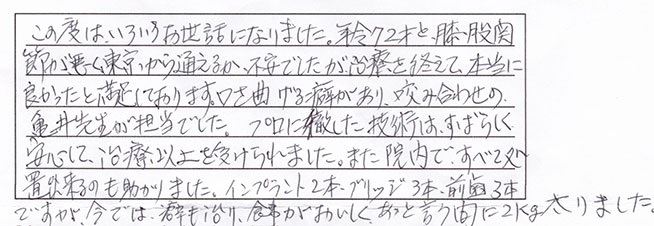 この度は、いろいろお世話になりました。年令72才と、膝・股関
節が悪く、東京から通えるか、不安でしたが、治療を終えて、本当に
良かったと満足しております。口を曲げる癖があり、咬み合わせの、
亀井先生が担当でした。プロに徹した技術は、すばらしく
安心して、治療以上を受けられました。また院内で、すべて処
置出来るのも助かりました。インプラント2本・ブリッジ3本・前歯3本
ですが、今では、癖も治り、食事がおいしく、あっと言う間に2kg太りました。